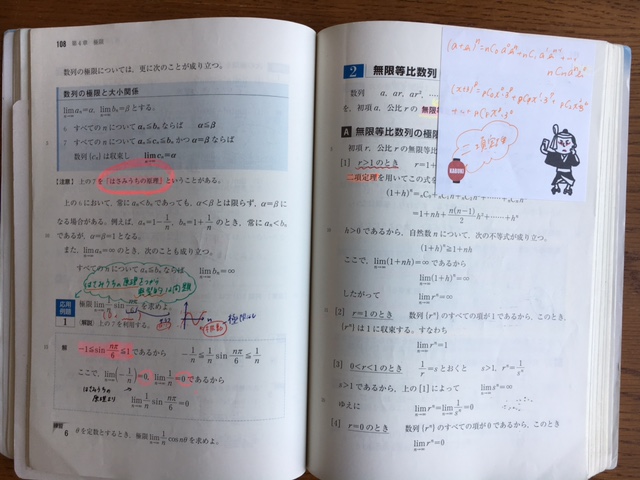 108 第4章 極限
数列の極限については、更に次のことが成り立つ。
数列の極限と大小関係
lim aₙ=α, lim bₙ=β とする。
6 すべての n について aₙ≦bₙ ならば α≦β
7 すべての n について aₙ≦cₙ≦bₙ かつ α=β ならば
数列{cₙ}は収束し lim cₙ=α
【注意】 上の7を「はさみうちの原理」ということがある。
上の6において、常に aₙ<bₙ であっても、α<β とは限らず、α=β に
なる場合がある。例えば、aₙ=1−1/n, bₙ=1+1/n のとき、常に aₙ<bₙ
であるが、α=β=1 となる。
また、lim aₙ=∞ のとき、次のことも成り立つ。
すべての n について aₙ≦bₙ ならば lim bₙ=∞
はさみうちの原理をつかう
典型的な
問題
応用
例題
1
極限 lim 1/n sin nπ/6 を求めよ。
解説 上の7を利用する。
解 −1≦sin nπ/6≦1 であるから −1/n≦1/n sin nπ/6≦1/n
ここで、lim(−1/n)=0, lim 1/n=0 であるから
はさみうちの
原理より
lim 1/n sin nπ/6=0
練習
6
θを定数とするとき、極限 lim 1/n cos nθ を求めよ。
2 無限等比数列
数列 a, ar, ar², …
を、初項 a、公比 r の無限
A 無限等比数列の極限
初項 r、公比 r の無限等
[1] r>1 のとき r=1+
二項定理を用いてこの式を
(1+h)ⁿ=
=1+nh+n(n−1)/2 h²+……+hⁿ
h>0 であるから、自然数 n について、次の不等式が成り立つ。
(1+h)ⁿ≧1+nh
ここで、lim(1+nh)=∞ であるから
lim(1+h)ⁿ=∞
したがって lim rⁿ=∞
[2] r=1 のとき 数列{rⁿ}のすべての項が1であるから、このとき
{rⁿ}は1に収束する。すなわち
lim rⁿ=1
[3] 0<r<1 のとき 1/r=s とおくと s>1, rⁿ=1/sⁿ
s>1 であるから、上の[1]によって lim sⁿ=∞
ゆえに lim rⁿ=lim 1/sⁿ=0
[4] r=0 のとき 数列{rⁿ}のすべての項が0であるから、このとき
lim rⁿ=0
二項定理
KABUKI